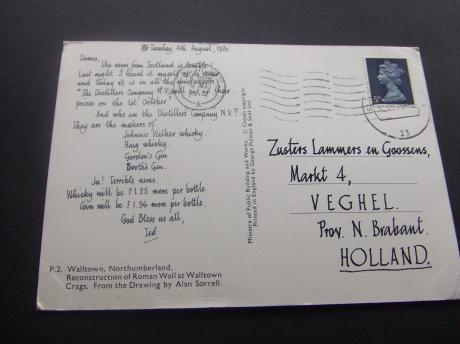 Tuesday, 4th August, 1970.
Dames,
The news from Scotland is terrible!
Last night I heard it myself on
and today it is in all the newspapers
"The Distillers Company N.V. will put up their
prices on the 1st October."
And who are the Distillers Company N.V.?
They are the makers of
Johnnie Walker whisky.
Haig whisky.
Gordon's Gin.
Booth's Gin.
Ja! Terrible news.
Whisky will be F1.25 more per bottle.
Gin will be F1.96 more per bottle.
God Bless us all,
Ted
P.2. Walltown, Northumberland.
Reconstruction of Roman Wall at Walltown
Crags. From the Drawing by Alan Sorrell.
Ministry of Public Building and Works © Crown copyright
Printed in England by George Pulman & Sons Ltd
23
Zusters Lammers en Goossens,
Markt 4,
VEGHEL.
Prov. N. Brabant.
HOLLAND.